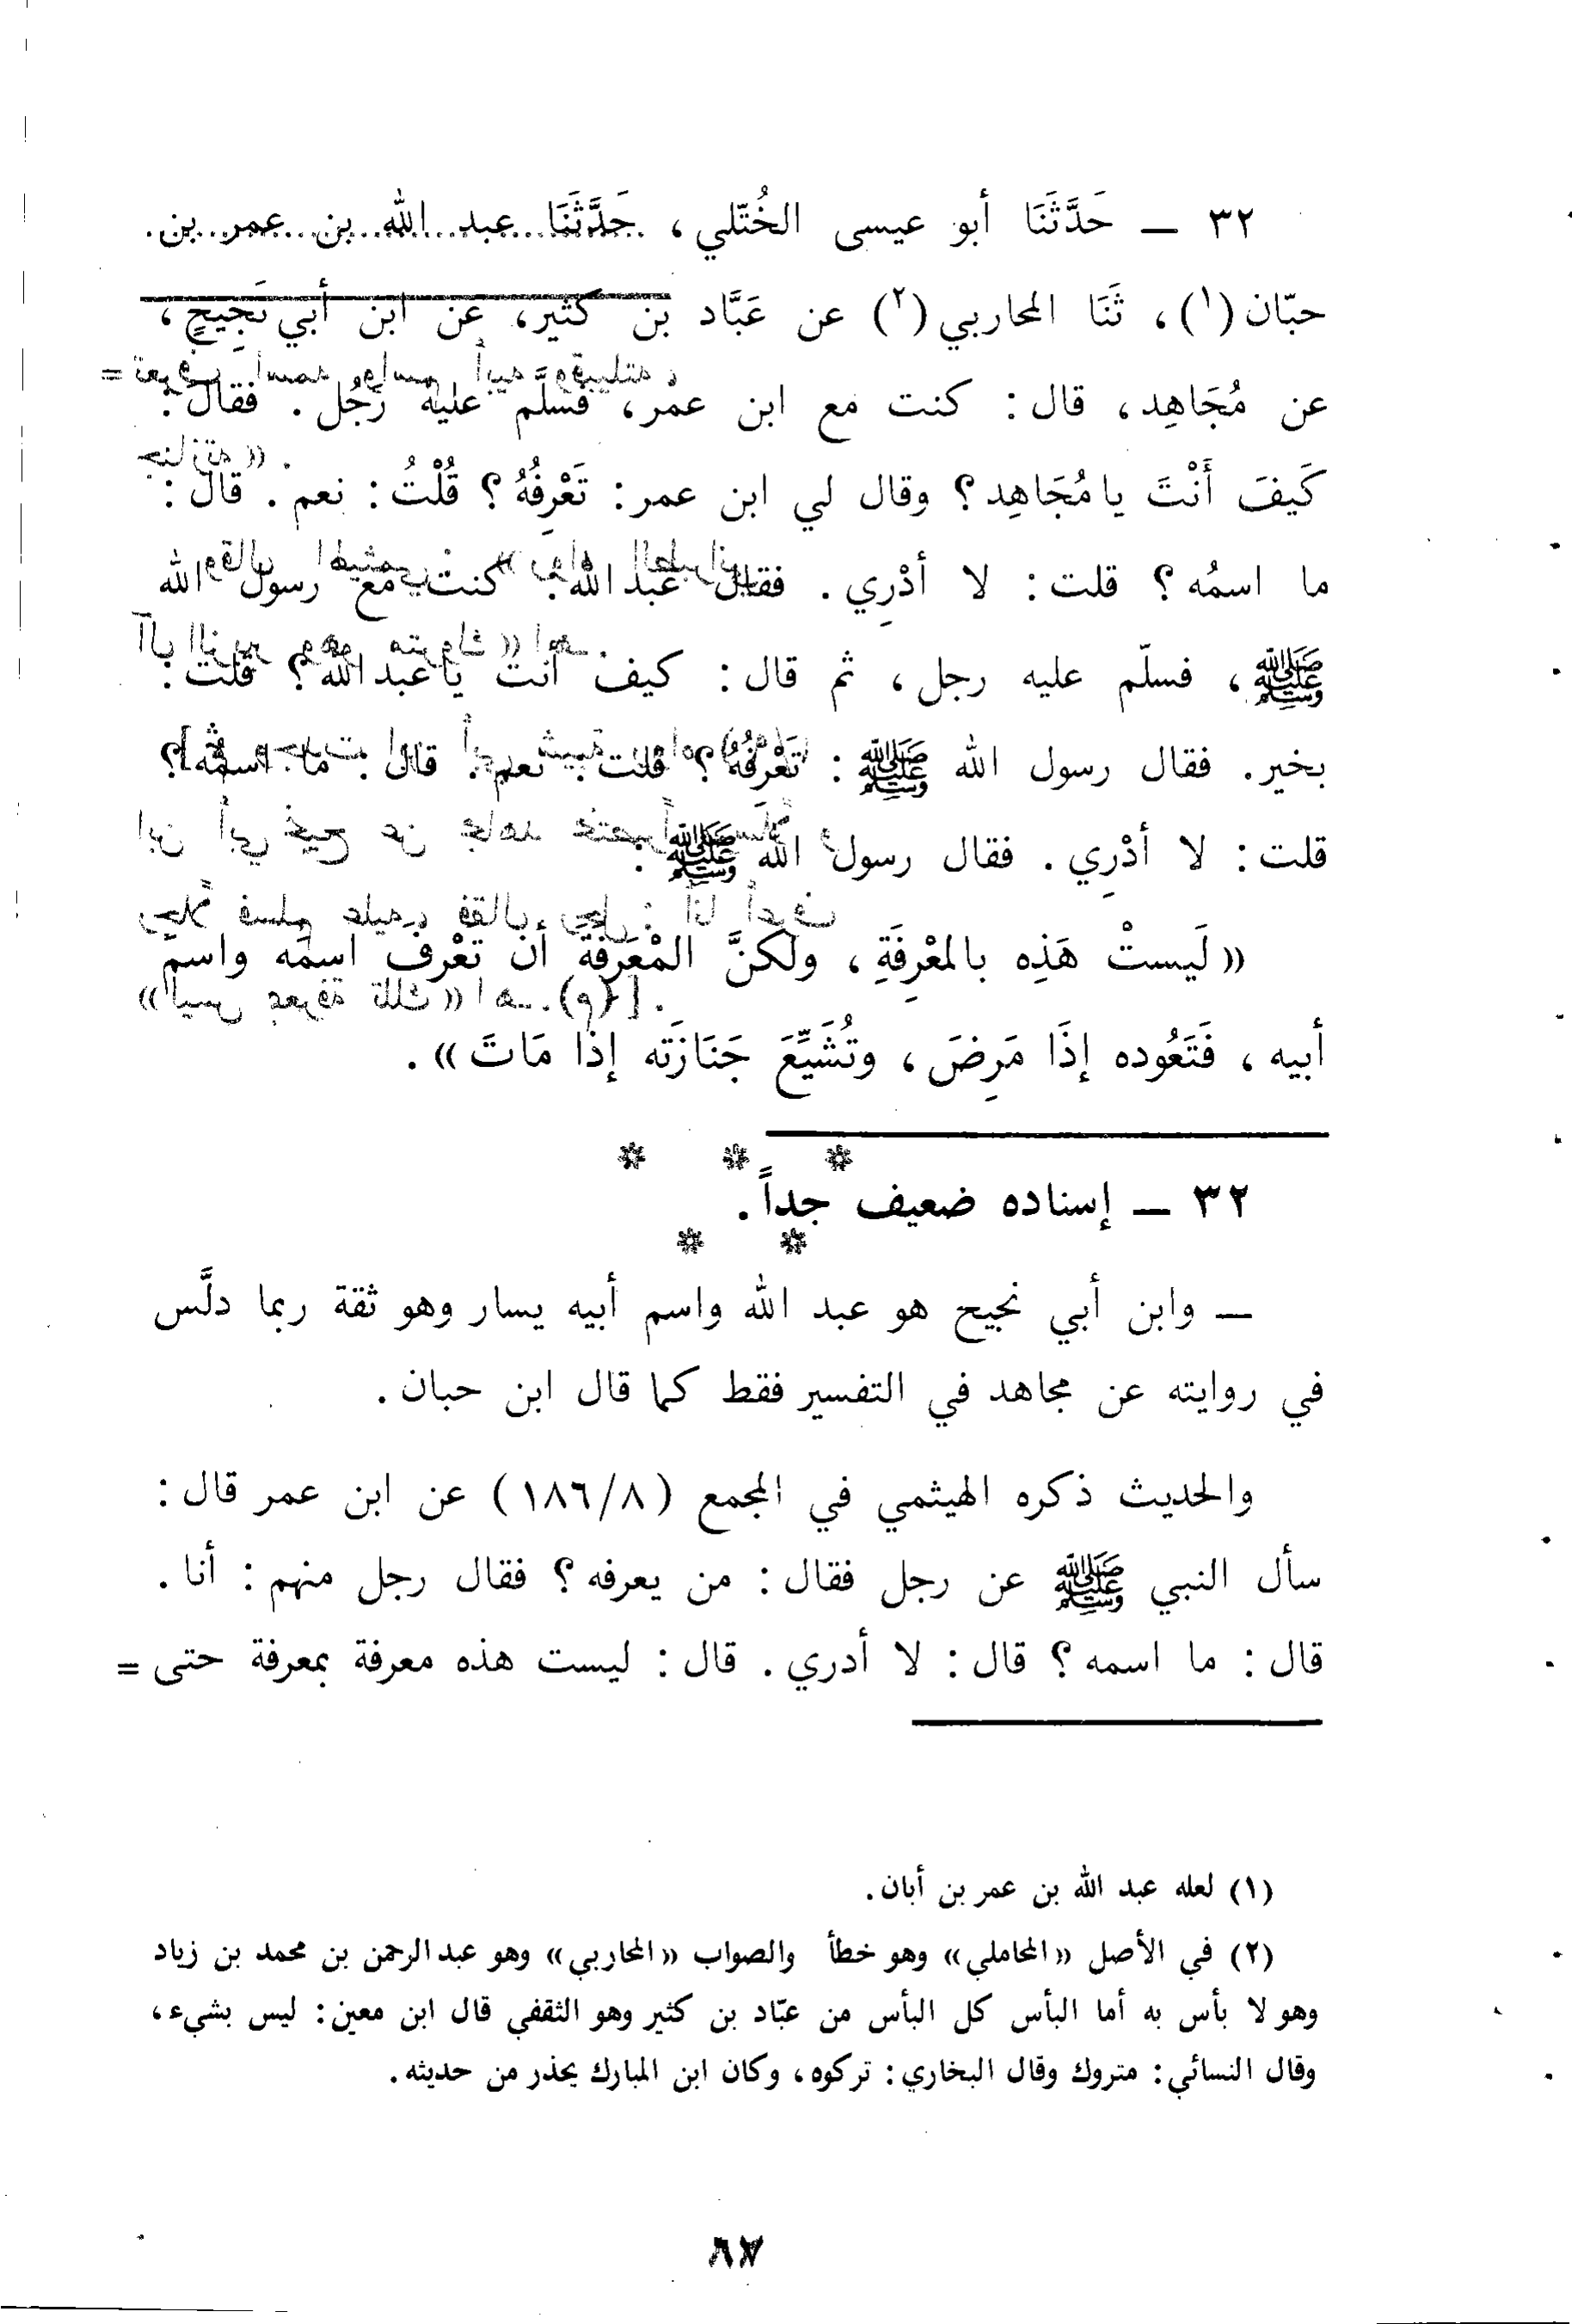 ٣٢ — حَدَّثَنَا أبو عيسى الخُتّلي، حَدَّثَنَا عبد الله بن عمر بن
حبّان(١)، ثَنَا المحاربي(٢) عن عَبَّاد بن كثير، عن ابن أبي نَجِيحٍ،
عن مُجَاهِد، قال: كنت مع ابن عمر، فسلَّم عليه رَجُل. فقال:
كَيفَ أَنْتَ يا مُجَاهِد؟ وقال لي ابن عمر: تَعْرِفُهُ؟ قُلْتُ: نعم. قال:
ما اسمُه؟ قلت: لا أدْرِي. فقال عبد الله: كنت مع رسول الله
ﷺ، فسلّم عليه رجل، ثم قال: كيف أنت يا عبد الله؟ قلت:
بخير. فقال رسول الله ﷺ: تَعْرِفُهُ؟ قلت: نعم. قال: ما اسمه؟
قلت: لا أدْرِي. فقال رسول الله ﷺ:
«لَيستْ هَذِه بالمعْرِفَةِ، ولكنَّ المْعَرِفَةَ أن تَعْرِفَ اسمَه واسمَ
أبيه، فَتَعُوده إذَا مَرِضَ، وتُشَيِّعَ جَنَازَته إذَا مَاتَ».
* * *
٣٢ — إسناده ضعيف جداً.
* *
— وابن أبي نجيح هو عبد الله واسم أبيه يسار وهو ثقة ربما دلَّس
في روايته عن مجاهد في التفسير فقط كما قال ابن حبان.
والحديث ذكره الهيثمي في المجمع (١٨٦/٨) عن ابن عمر قال:
سأل النبي ﷺ عن رجل فقال: من يعرفه؟ فقال رجل منهم: أنا.
قال: ما اسمه؟ قال: لا أدري. قال: ليست هذه معرفة بمعرفة حتى =
(١) لعله عبد الله بن عمر بن أبان.
(٢) في الأصل «المحاملي» وهو خطأ والصواب «المحاربي» وهو عبد الرحمن بن محمد بن زياد
وهو لا بأس به أما البأس كل البأس من عبّاد بن كثير وهو الثقفي قال ابن معين: ليس بشيء،
وقال النسائي: متروك وقال البخاري: تركوه، وكان ابن المبارك يحذر من حديثه.